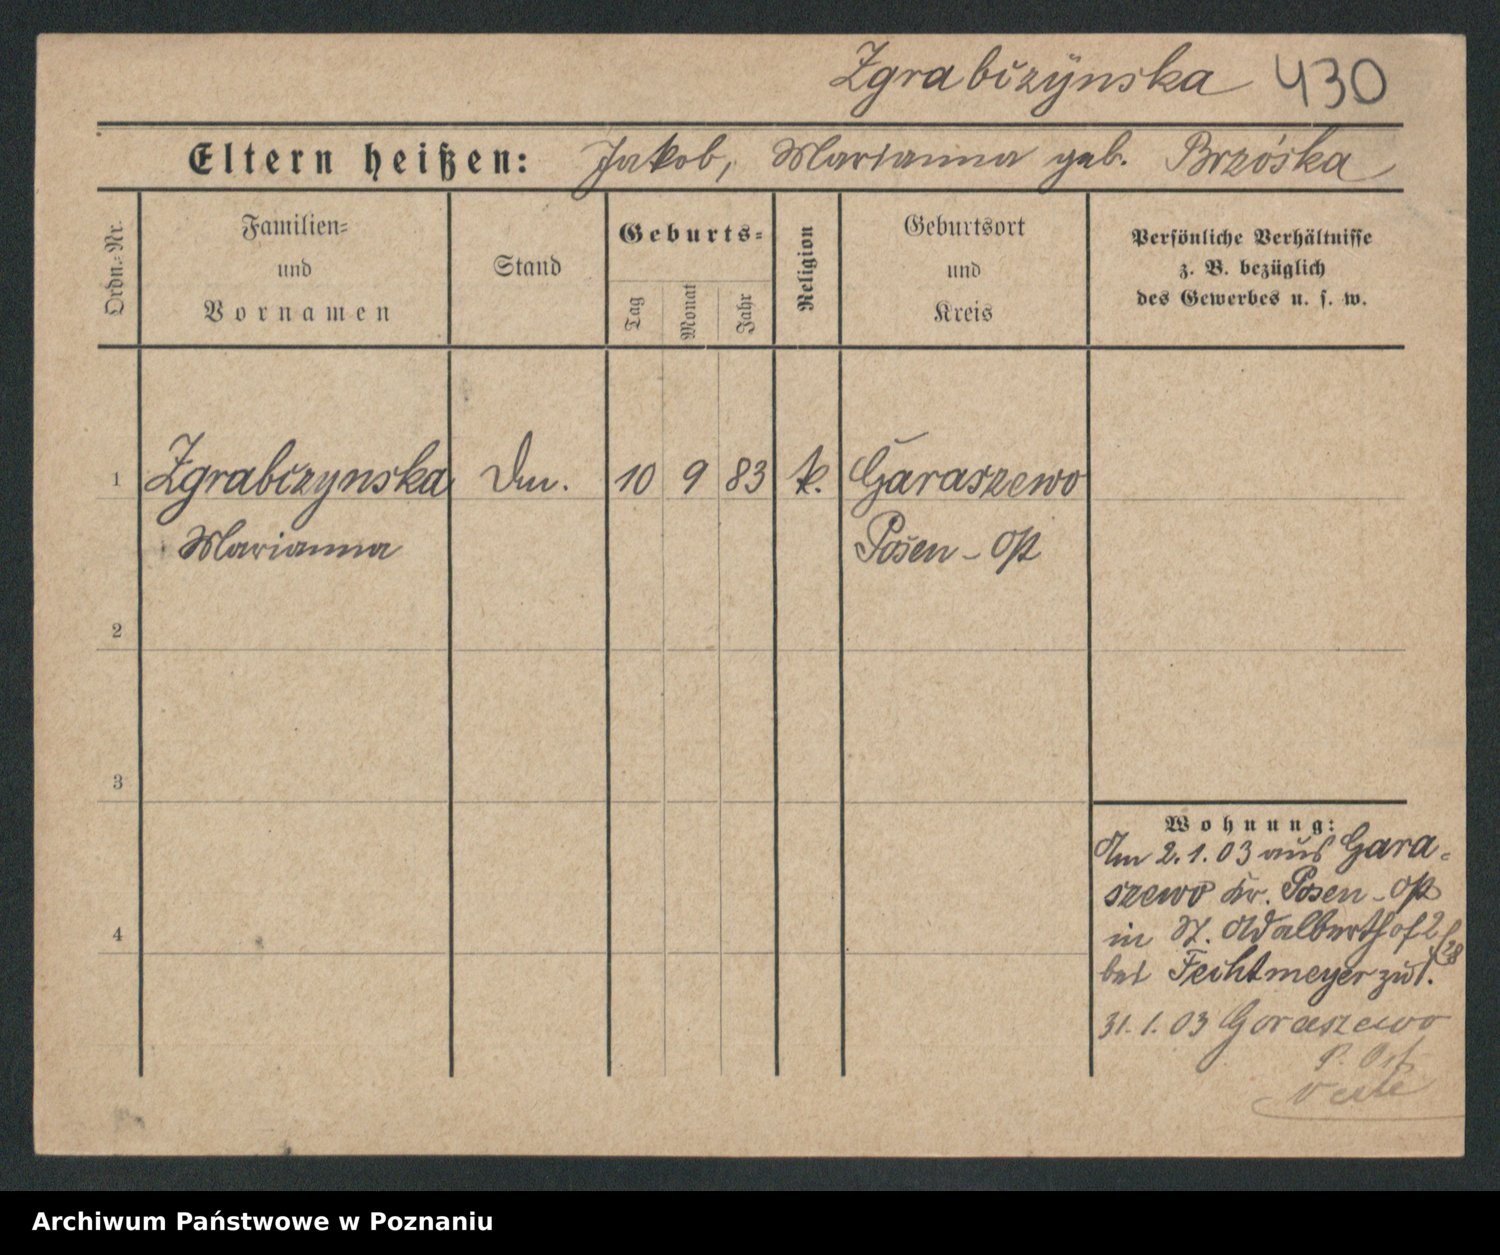 Zgrabczynska 430
Eltern heißen: Jakob, Marianna geb. Brzóska
Ordn.-Nr.
Familien-
und
Vornamen
Stand
Geburts-
Tag
Monat
Jahr
Religion
Geburtsort
und
Kreis
Persönliche Verhältnisse
z. B. bezüglich
des Gewerbes u. s. w.
1 Zgrabczynska 10 9 83 k. Garaszewo
Marianna Posen - Ost
2
3
4
Wohnung:
Am 2.1.03 aus Gara-
szewo Kr. Posen - Ost
in St. Adalberthof 2
bei Fechtmeyer
31.1.03 Goraszewo
P. Ost
Archiwum Państwowe w Poznaniu